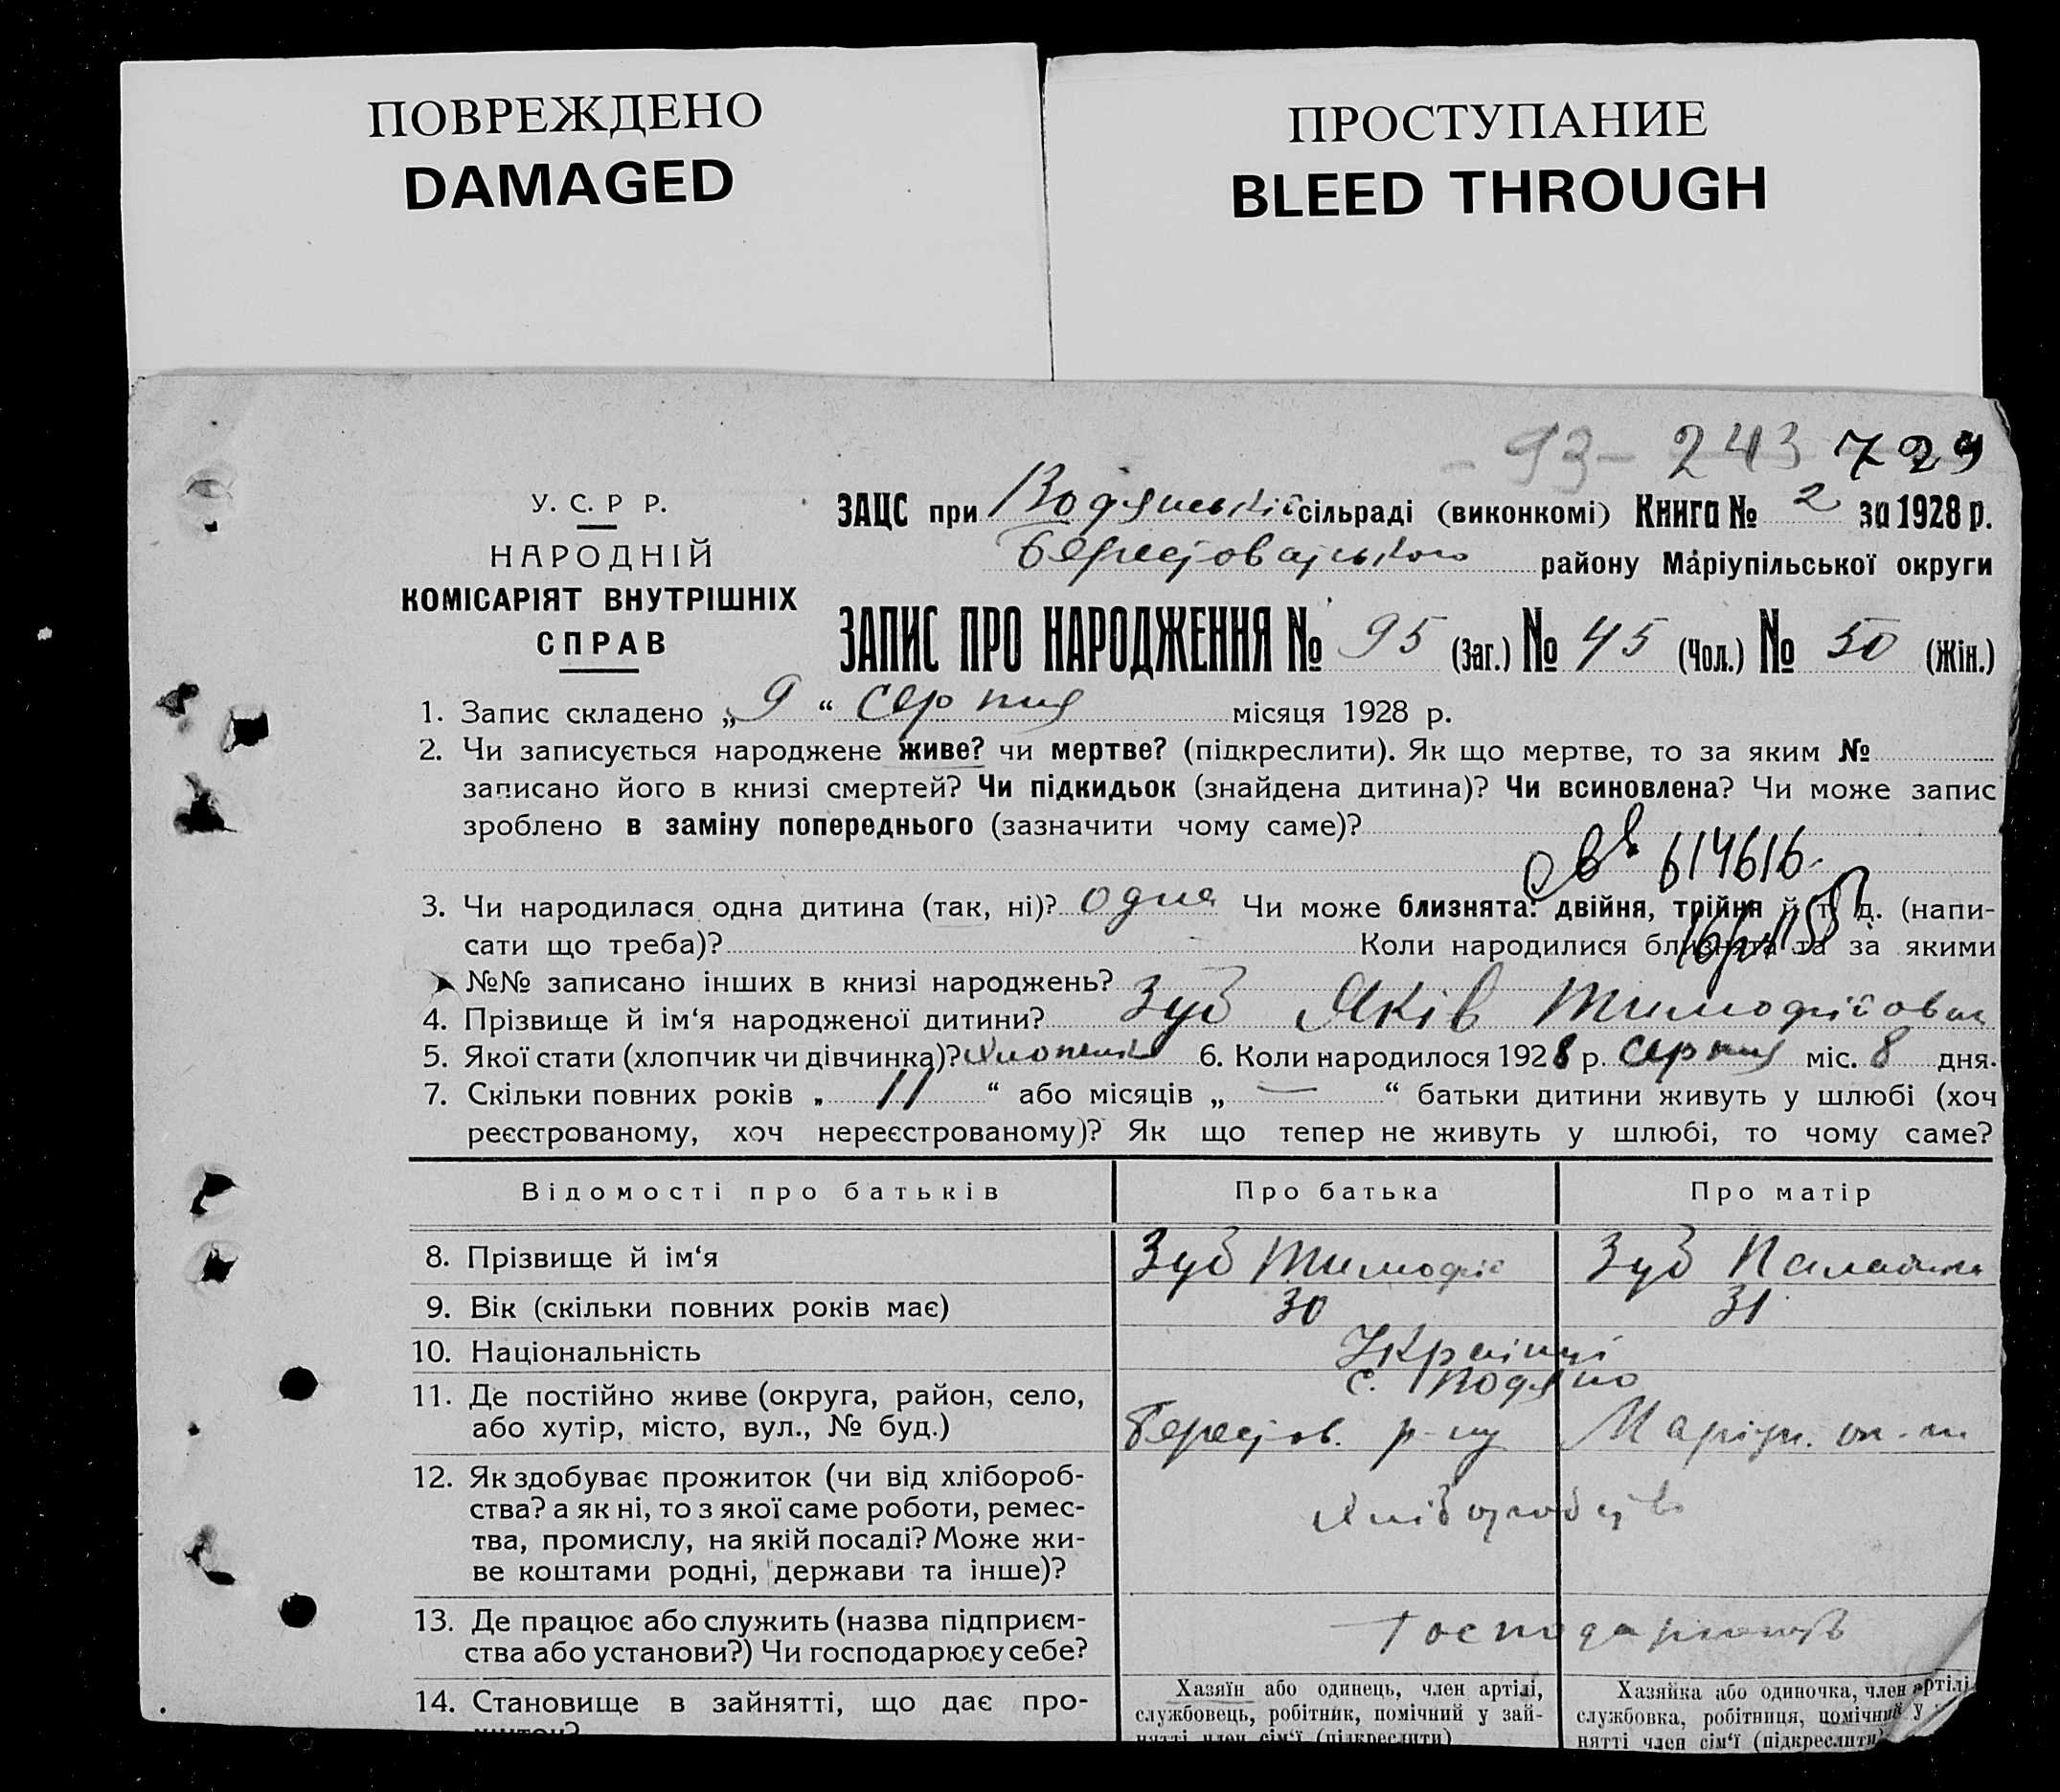 ПОВРЕЖДЕНО
DAMAGED
ПРОСТУПАНИЕ
BLEED THROUGH
- 93 - 243 729
У. С. Р Р.
НАРОДНІЙ
КОМІСАРІЯТ ВНУТРІШНІХ
СПРАВ
ЗАЦС при Водянській сільраді (виконкомі) Книга № 2 за 1928 р.
Берестоватського району Маріупільської округи
ЗАПИС ПРО НАРОДЖЕННЯ № 95 (Заг.) № 45 (Чол.) № 50 (Жін.)
1. Запис складено „ 9 “ серпня місяця 1928 р.
2. Чи записується народжене живе? чи мертве? (підкреслити). Як що мертве, то за яким №
записано його в книзі смертей? Чи підкидьок (знайдена дитина)? Чи всиновлена? Чи може запис
зроблено в заміну попереднього (зазначити чому саме)?
614616
3. Чи народилася одна дитина (так, ні)? одна Чи може близнята: двійня, трійня й т. д. (напи-
сати що треба)? Коли народилися близнята та за якими
№№ записано інших в книзі народжень?
4. Прізвище й ім‘я народженої дитини? Зуб Яків Тимофійович
5. Якої стати (хлопчик чи дівчинка)? хлопчик 6. Коли народилось 1928 р. серпня міс. 8 дня.
7. Скільки повних років „ 11 “ або місяців „ — “ батьки дитини живуть у шлюбі (хоч
реєстрованому, хоч нереєстрованому)? Як що тепер не живуть у шлюбі, то чому саме?
Відомості про батьків Про батька Про матір
8. Прізвище й ім‘я Зуб Тимофій Зуб Палажка
9. Вік (скільки повних років має) 30 31
10. Національність Українці
11. Де постійно живе (округа, район, село, с. Водяно
або хутір, місто, вул., № буд.) Берестов. р-ну Маріуп. ок-ги
12. Як здобуває прожиток (чи від хлібороб-
ства? а як ні, то з якої саме роботи, ремес- хліборобство
тва, промислу, на якій посаді? Може жи-
ве коштами родні, держави та інше)?
13. Де працює або служить (назва підприєм- Господарюють
ства або установи?) Чи господарює у себе?
14. Становище в зайнятті, що дає про-
Хазяїн або одинець, член артілі,
службовець, робітник, помічний у зай-
нятті член сім‘ї (підкреслити)
Хазяйка або одиночка, член артілі
службовка, робітниця, помічний у
нятті член сім‘ї (підкреслити)